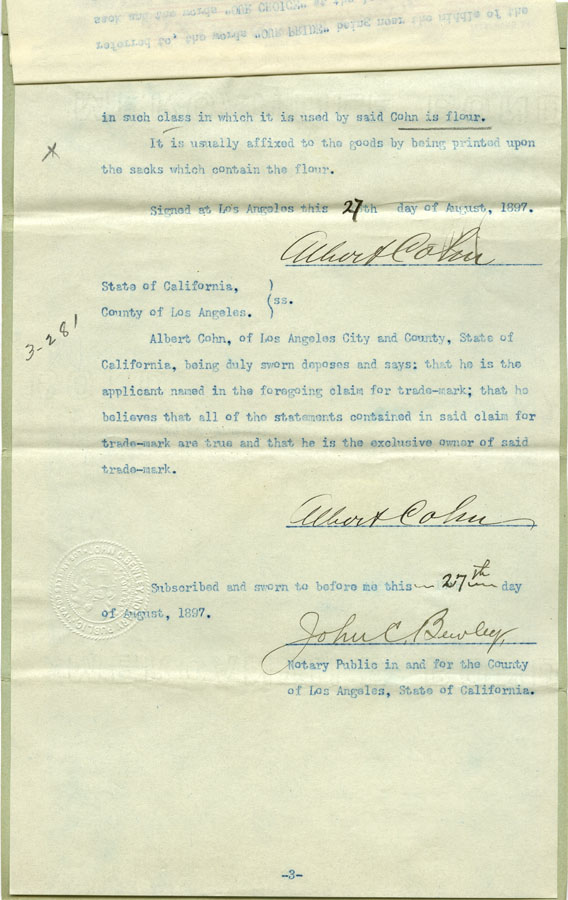 referred to, the words "OUR PRIDE" being near the middle of the
sack and the words "OUR CHOICE" at the
in such class in which it is used by said Cohn is flour.
x
It is usually affixed to the goods by being printed upon
the sacks which contain the flour.
Signed at Los Angeles this 27th day of August, 1897.
Albert Cohn
State of California, )
(ss.
County of Los Angeles. )
3-281
Albert Cohn, of Los Angeles City and County, State of
California, being duly sworn deposes and says: that he is the
applicant named in the foregoing claim for trade-mark; that he
believes that all of the statements contained in said claim for
trade-mark are true and that he is the exclusive owner of said
trade-mark.
Albert Cohn
Subscribed and sworn to before me this 27th day
of August, 1897.
John C. Bewley,
Notary Public in and for the County
of Los Angeles, State of California.
-3-